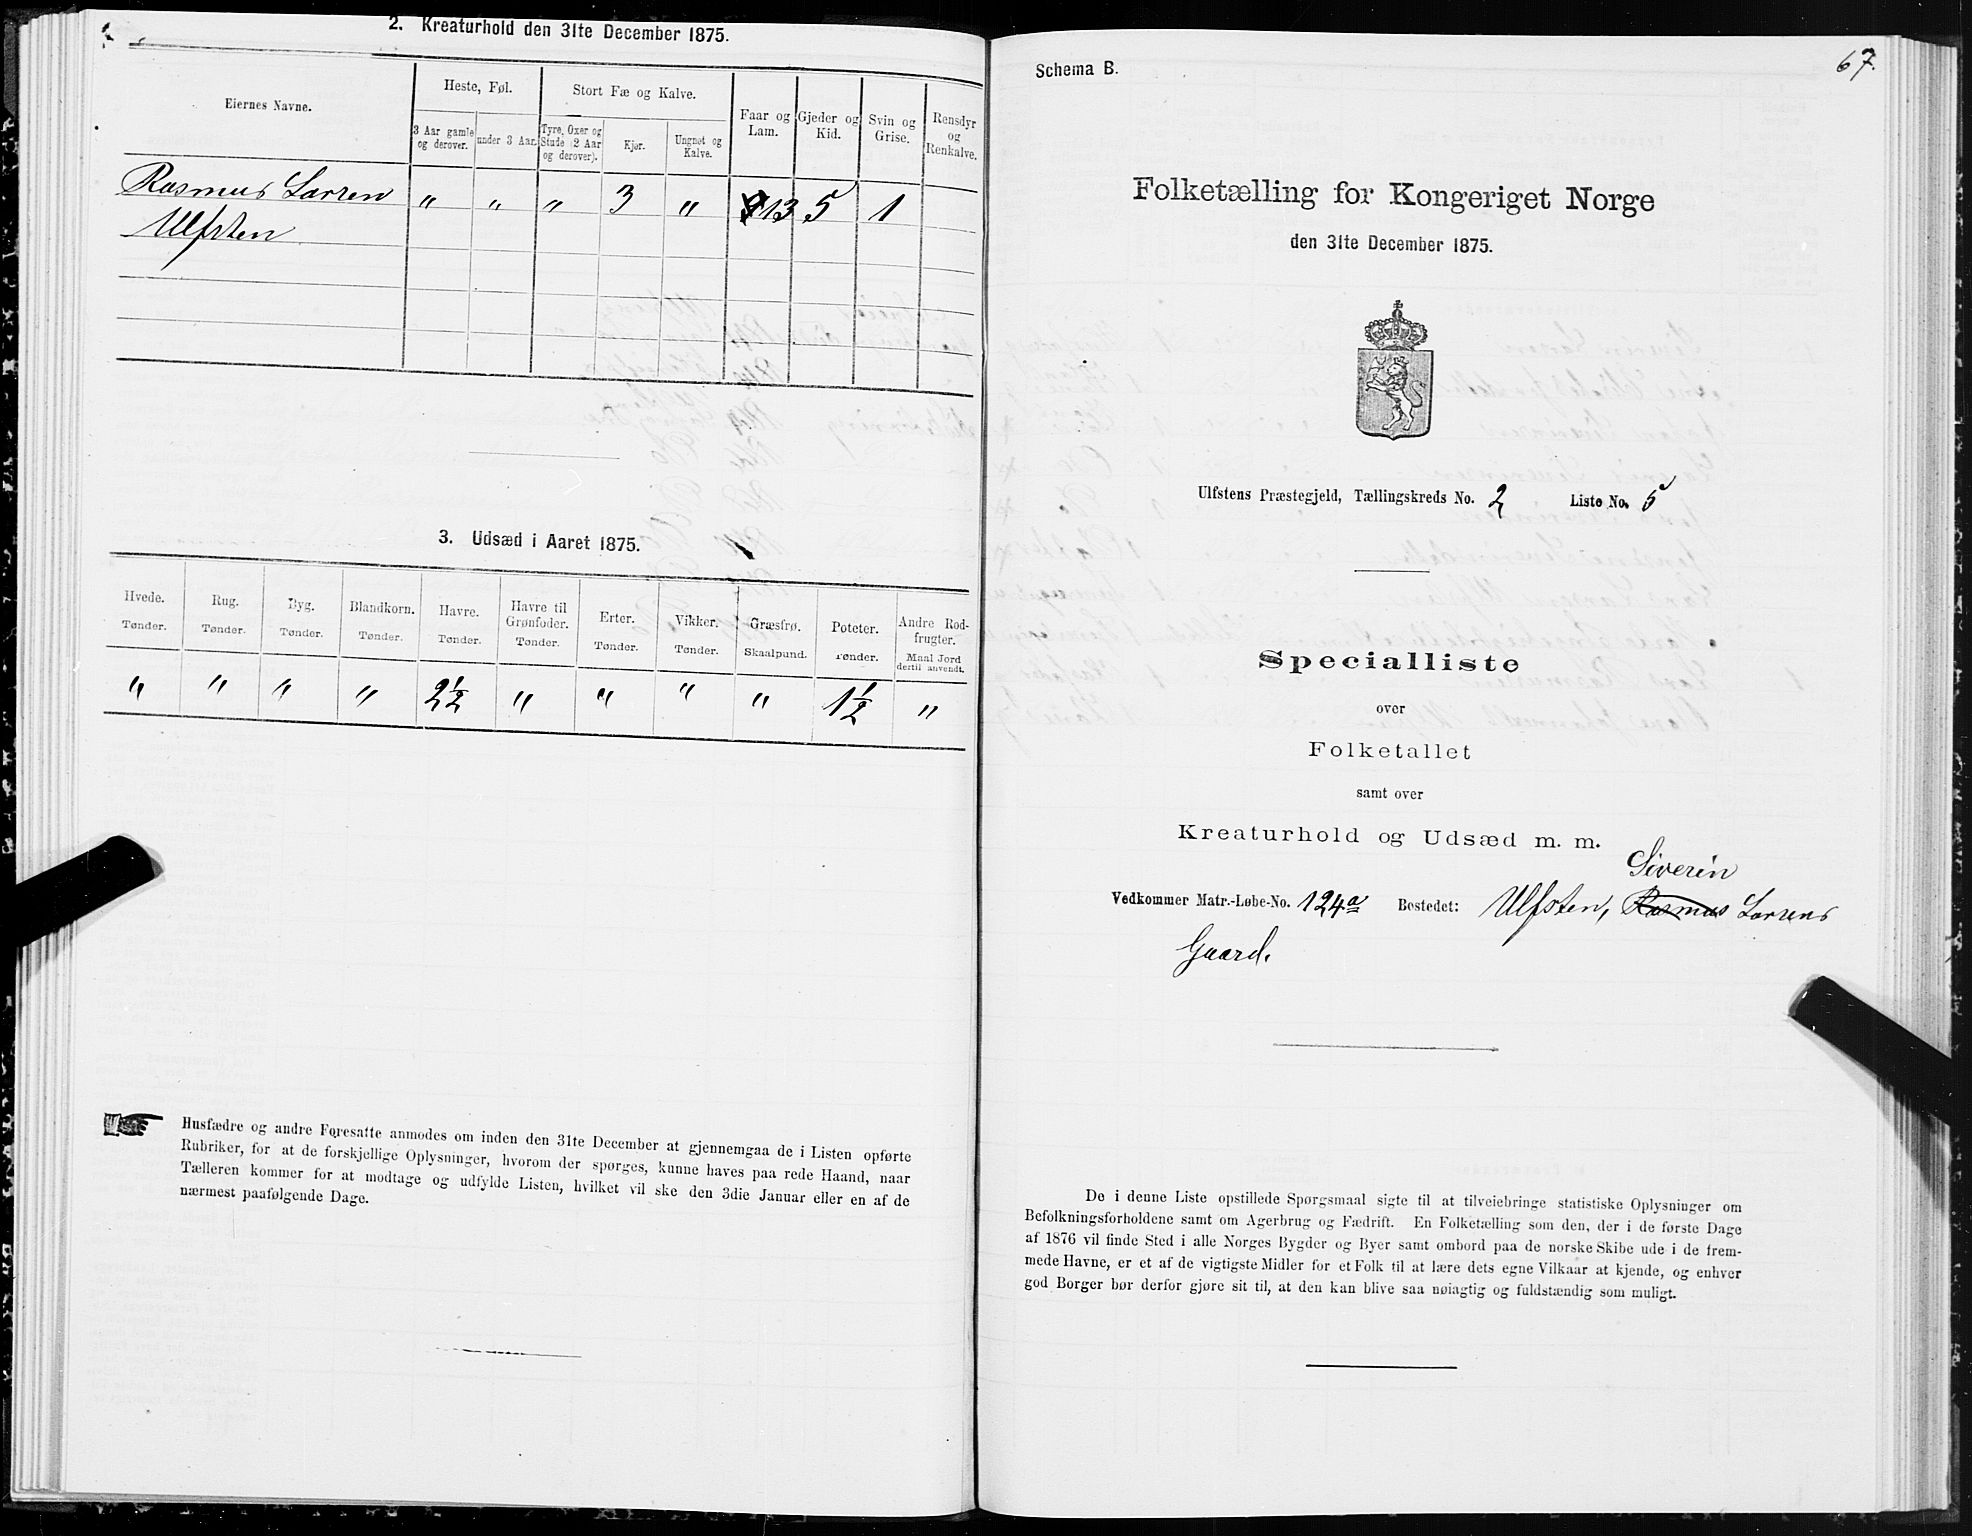 2. Kreaturhold den 31te December 1875.
Eiernes Navne.
Heste, Føl.
Stort Fæ og Kalve.
Faar og Lam.
Gjeder og Kid.
Svin og Grise.
Rensdyr og Renkalve.
3 Aar gamle og derover.
under 3 Aar.
Tyre, Oxer og Stude (2 Aar og derover).
Kjør.
Ungnøt og Kalve.
Rasmus Larsen " " " 3 " 13 5 1
Ulfsten
3. Udsæd i Aaret 1875.
Hvede. Rug. Byg. Blandkorn. Havre. Havre til Grønfoder. Erter. Vikker. Græsfrø. Poteter. Andre Rodfrugter.
Tønder. Tønder. Tønder. Tønder. Tønder. Tønder. Tønder. Tønder. Skaalpund. Tønder. Maal Jord dertil anvendt.
" " " " 2½ " " " " 1½ "
Husfædre og andre Foresatte anmodes om inden den 31te December at gjennemgaa de i Listen opførte
Rubriker, for at de forskjellige Oplysninger, hvorom der spørges, kunne haves paa rede Haand, naar
Tælleren kommer for at modtage og udfylde Listen, hvilket vil ske den 3die Januar eller en af de
nærmest paafølgende Dage.
67.
Schema B.
Folketælling for Kongeriget Norge
den 31te December 1875.
Ulfstens Præstegjeld, Tællingskreds No. 2 Liste No. 5
Specialliste
over
Folketallet
samt over
Kreaturhold og Udsæd m. m.
Siverin
Vedkommer Matr.-Løbe-No. 124a Bostedet: Ulfsten, Rasmus Larsens
Gaard.
De i denne Liste opstillede Spørgsmaal sigte til at tilveiebringe statistiske Oplysninger om
Befolkningsforholdene samt om Agerbrug og Fædrift. En Folketælling som den, der i de første Dage
af 1876 vil finde Sted i alle Norges Bygder og Byer samt ombord paa de norske Skibe ude i de frem-
mede Havne, er et af de vigtigste Midler for et Folk til at lære dets egne Vilkaar at kjende, og enhver
god Borger bør derfor gjøre sit til, at den kan blive saa nøiagtig og fuldstændig som muligt.